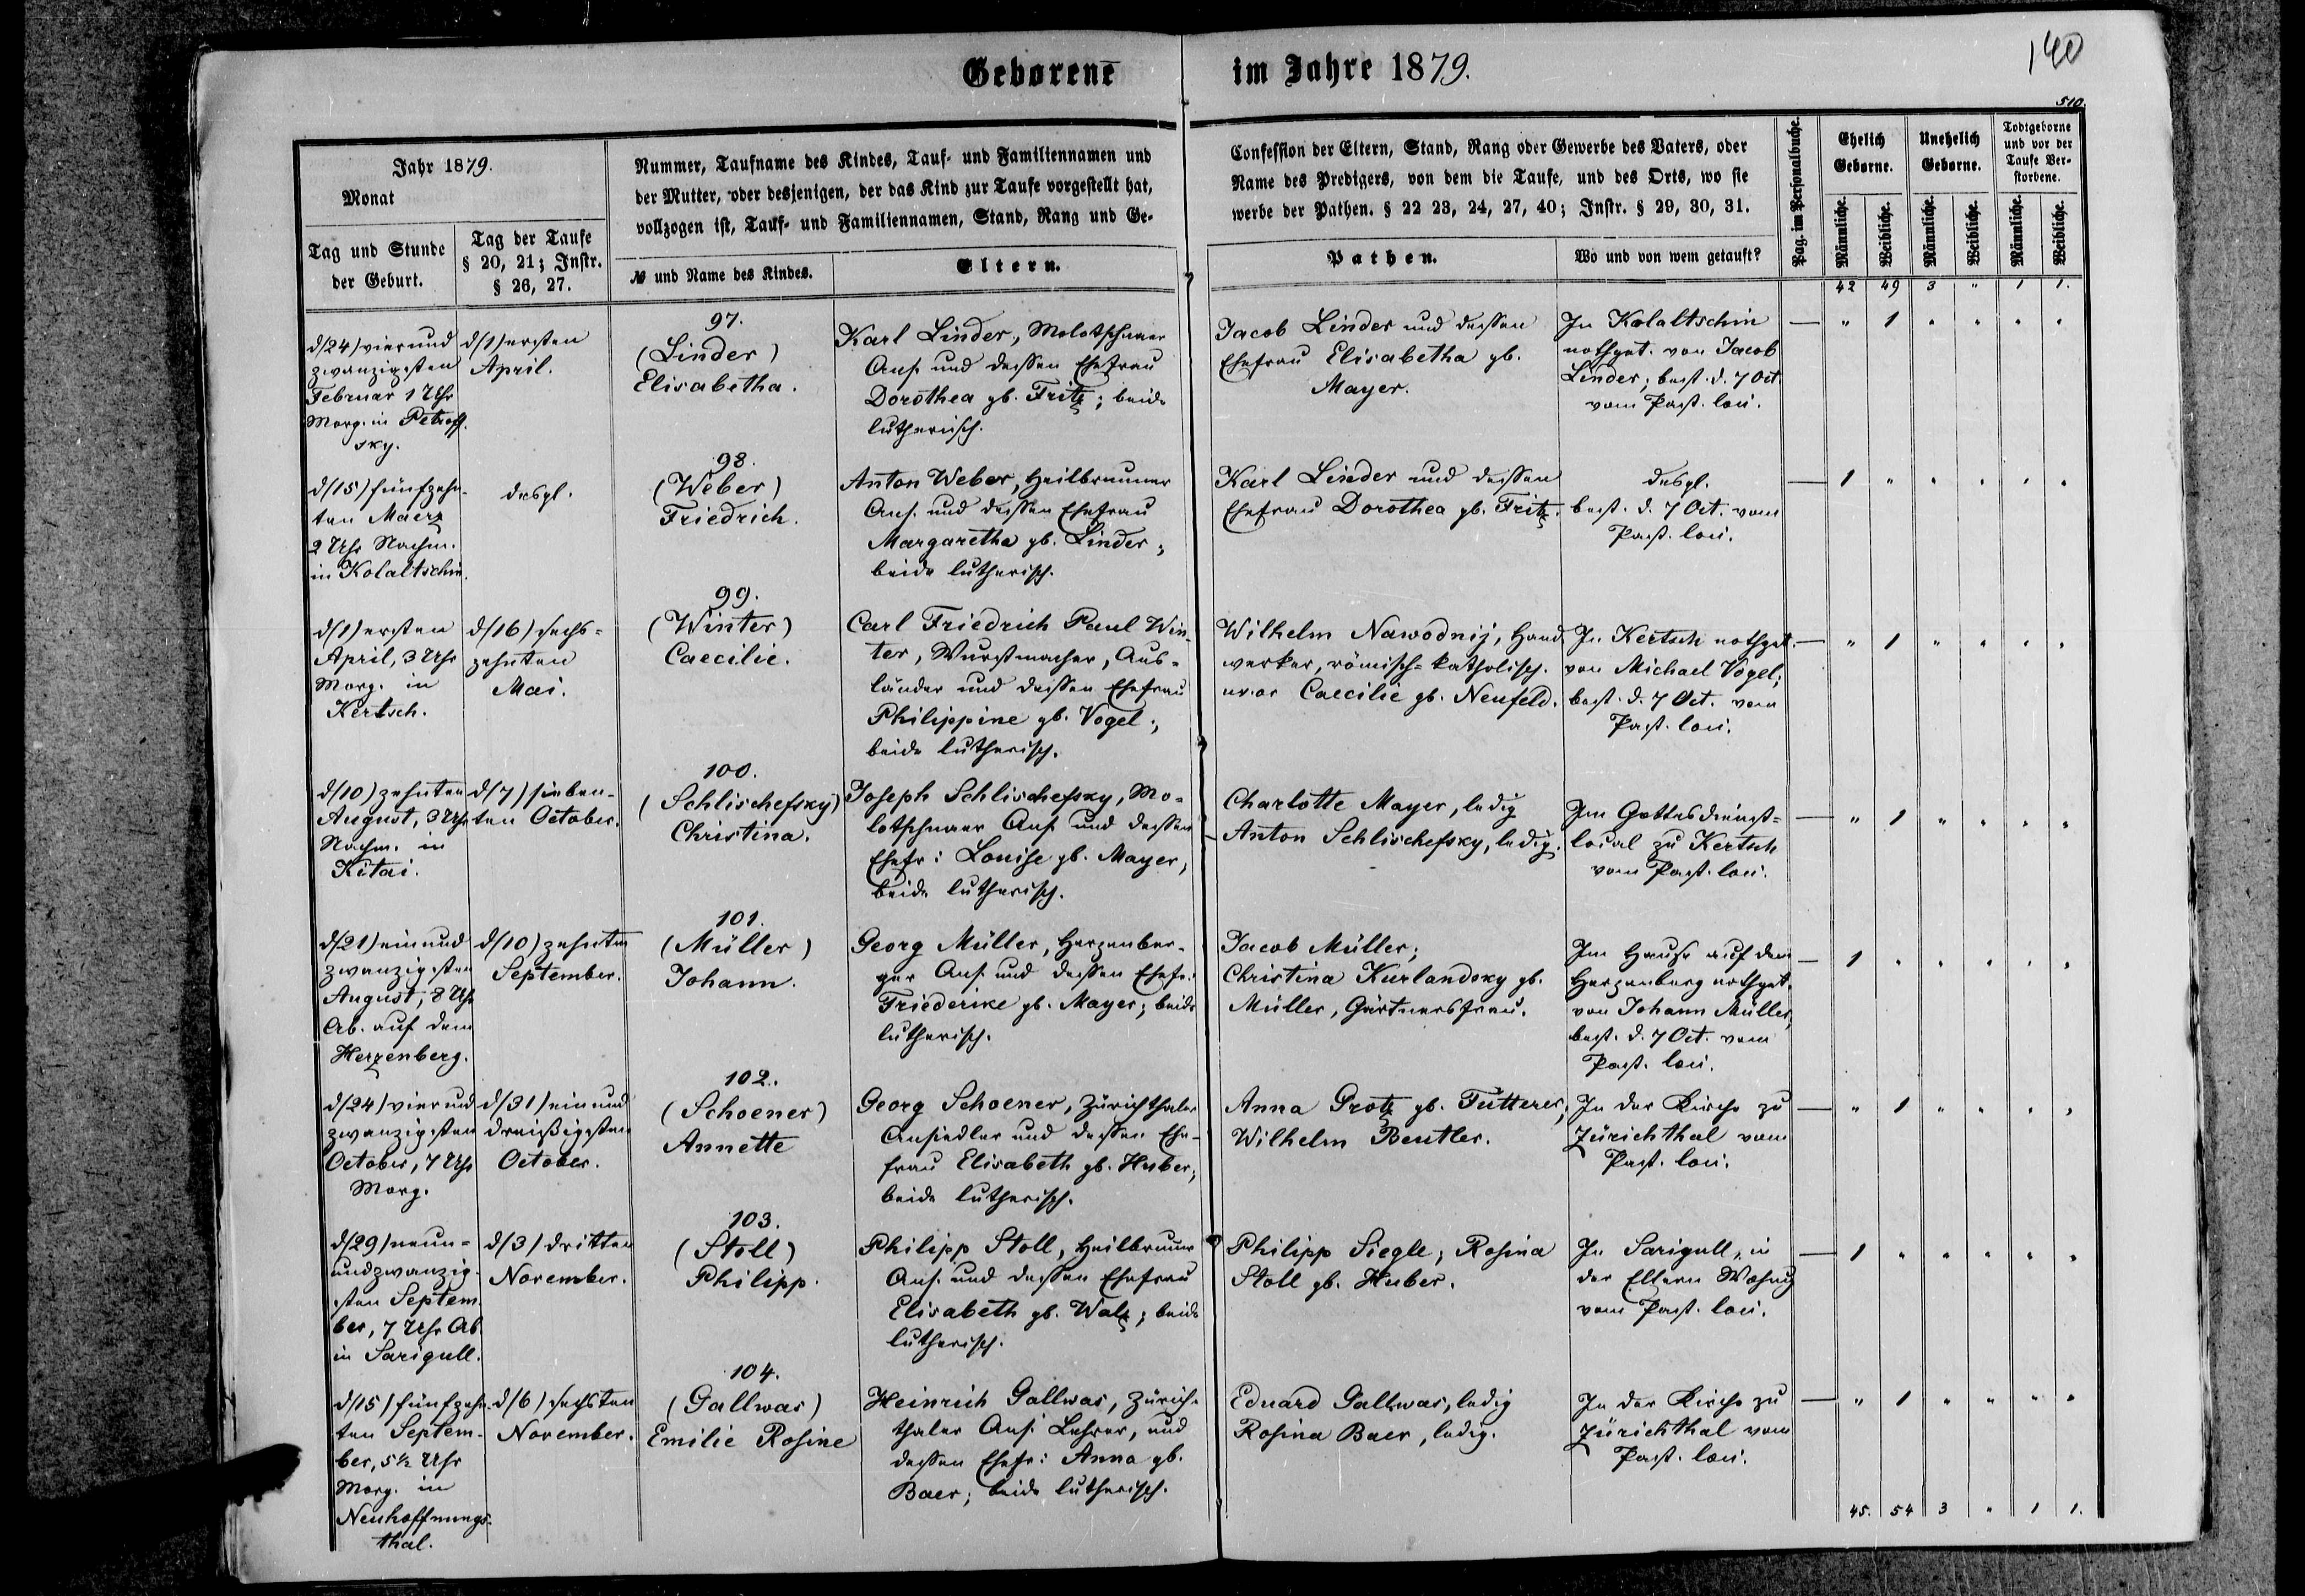 Geborene im Jahre 1879.
140
510.
Jahr 1879.
Monat
Tag und Stunde
der Geburt.
Tag der Taufe
§ 20, 21; Instr.
§ 26, 27.
Nummer, Taufname des Kindes, Tauf- und Familiennamen und
der Mutter, oder desjenigen, der das Kind zur Taufe vorgestellt hat,
vollzogen ist, Tauf- und Familiennamen, Stand, Rang und Ge-
№ und Name des Kindes.
Eltern.
Confession der Eltern, Stand, Rang oder Gewerbe des Vaters, oder
Name des Predigers, von dem die Taufe, und des Orts, wo sie
werbe der Pathen. § 22 23, 24, 27, 40; Instr. § 29, 30, 31.
Pathen.
Wo und von wem getauft?
Pag. im Personalbuche.
Ehelich
Geborne.
Unehelich
Geborne.
Todtgeborne
und vor der
Taufe Ver-
storbene.
Männliche.
Weibliche.
Männliche.
Weibliche.
Männliche.
Weibliche.
42 49 3 " 1 1.
d/24) vier und
zwanzigsten
Februar 1 Uhr
Morg. in Petroff
sky.
d/1) ersten
April.
97.
(Linder)
Elisabetha.
Karl Linder, Molotschnaer
Ans. und dessen Ehefrau
Dorothea gb. Fritz; beide
lutherisch.
Jacob Linder und dessen
Ehefrau Elisabetha gb.
Mayer.
In Kolaltschin
nothget. von Jacob
Linder; best. d. 7 Oct.
vom Past. loci.
— " 1 " " " "
d/15) fünfzehn-
ten Maerz
2 Uhr Nachm.
in Kolaltschin.
desgl.
98.
(Weber)
Friedrich.
Anton Weber, Heilbrunner
Ans. und dessen Ehefrau
Margaretha gb. Linder;
beide lutherisch.
Karl Linder und dessen
Ehefrau Dorothea gb. Fritz.
desgl.
best. d. 7 Oct. vom
Past. loci.
— 1 " " " " "
d/1) ersten
April, 3 Uhr
Morg. in
Kertsch.
d/16) sechs-
zehnten
Mai.
99.
(Winter)
Caecilie.
Carl Friedrich Paul Win-
ter, Wurstmacher, Aus-
länder und dessen Ehefrau
Philippine gb. Vogel;
beide lutherisch.
Wilhelm Nawodnij, Hand-
werker, römisch-katholisch.
uxor Caecilie gb. Neufeld.
In Kertsch nothget.
von Michael Vogel;
best. d. 7 Oct. vom
Past. loci.
— " 1 " " " "
d/10) zehnten
August, 3 Uhr
Nachm. in
Kitai.
d/7) sieben-
ten October.
100.
(Schlischefsky)
Christina.
Joseph Schlischefsky, Mo-
lotschnaer Ans. und dessen
Ehefr: Louise gb. Mayer;
beide lutherisch.
Charlotte Mayer, ledig
Anton Schlischefsky, ledig.
Im Gottesdienst-
local zu Kertsch
vom Past. loci.
— " 1 " " " "
d/21) ein und
zwanzigsten
August, 8 Uhr
Ab. auf dem
Herzenberg.
d/10) zehnten
September.
101.
(Müller)
Johann.
Georg Müller, Herzenber-
ger Ans. und dessen Ehefr:
Friederike gb. Mayer; beide
lutherisch.
Jacob Müller;
Christina Kurlandsky gb.
Müller, Gärtnersfrau.
Im Hause auf dem
Herzenberg nothget.
von Johann Müller,
best. d. 7 Oct. vom
Past. loci.
— 1 " " " " "
d/24) vier und
zwanzigsten
October, 7 Uhr
Morg.
d/31) ein und
dreißigsten
October.
102.
(Schoener)
Annette
Georg Schoener, Zürichthaler
Ansiedler und dessen Ehe-
frau Elisabeth gb. Huber;
beide lutherisch.
Anna Grotz gb. Futterer;
Wilhelm Beutler.
In der Kirche zu
Zürichthal vom
Past. loci.
— " 1 " " " "
d/29) neun-
undzwanzig-
sten Septem-
ber, 7 Uhr Ab.
in Sarigull.
d/3) dritten
November.
103.
(Stoll)
Philipp.
Philipp Stoll, Heilbrunner
Ans. und dessen Ehefrau
Elisabeth gb. Walz; beide
lutherisch.
Philipp Siegle; Rosina
Stoll gb. Huber.
In Sarigull, in
der Eltern Wohng
vom Past. loci.
— 1 " " " " "
d/15) fünfzehn-
ten Septem-
ber, 5½ Uhr
Morg. in
Neuhoffnungs-
thal.
d/6) sechsten
November.
104.
(Gallwas)
Emilie Rosine
Heinrich Gallwas, Zürich-
thaler Ans. Lehrer, und
dessen Ehefr: Anna gb.
Baer; beide lutherisch.
Eduard Gallwas, ledig
Rosina Baer, ledig.
In der Kirche zu
Zürichthal vom
Past. loci.
— " 1 " " " "
45. 54 3 " 1 1.